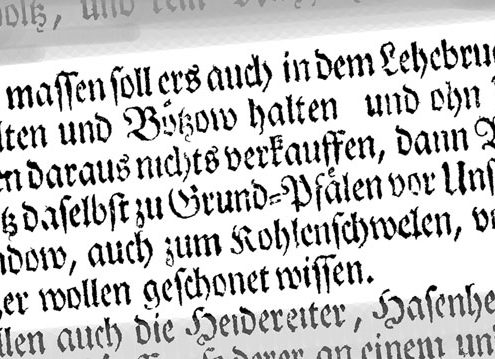 und
massen soll ers auch in dem Lehebru
lten und Bötzow halten und ohn
en daraus nichts verkauffen, dann
tz daselbst zu Grund-Pfälen vor Uns
ndow, auch zum Kohlenschwelen, v
er wollen geschonet wissen.
llen auch die Heidereiter, Hasenhe
an einem un